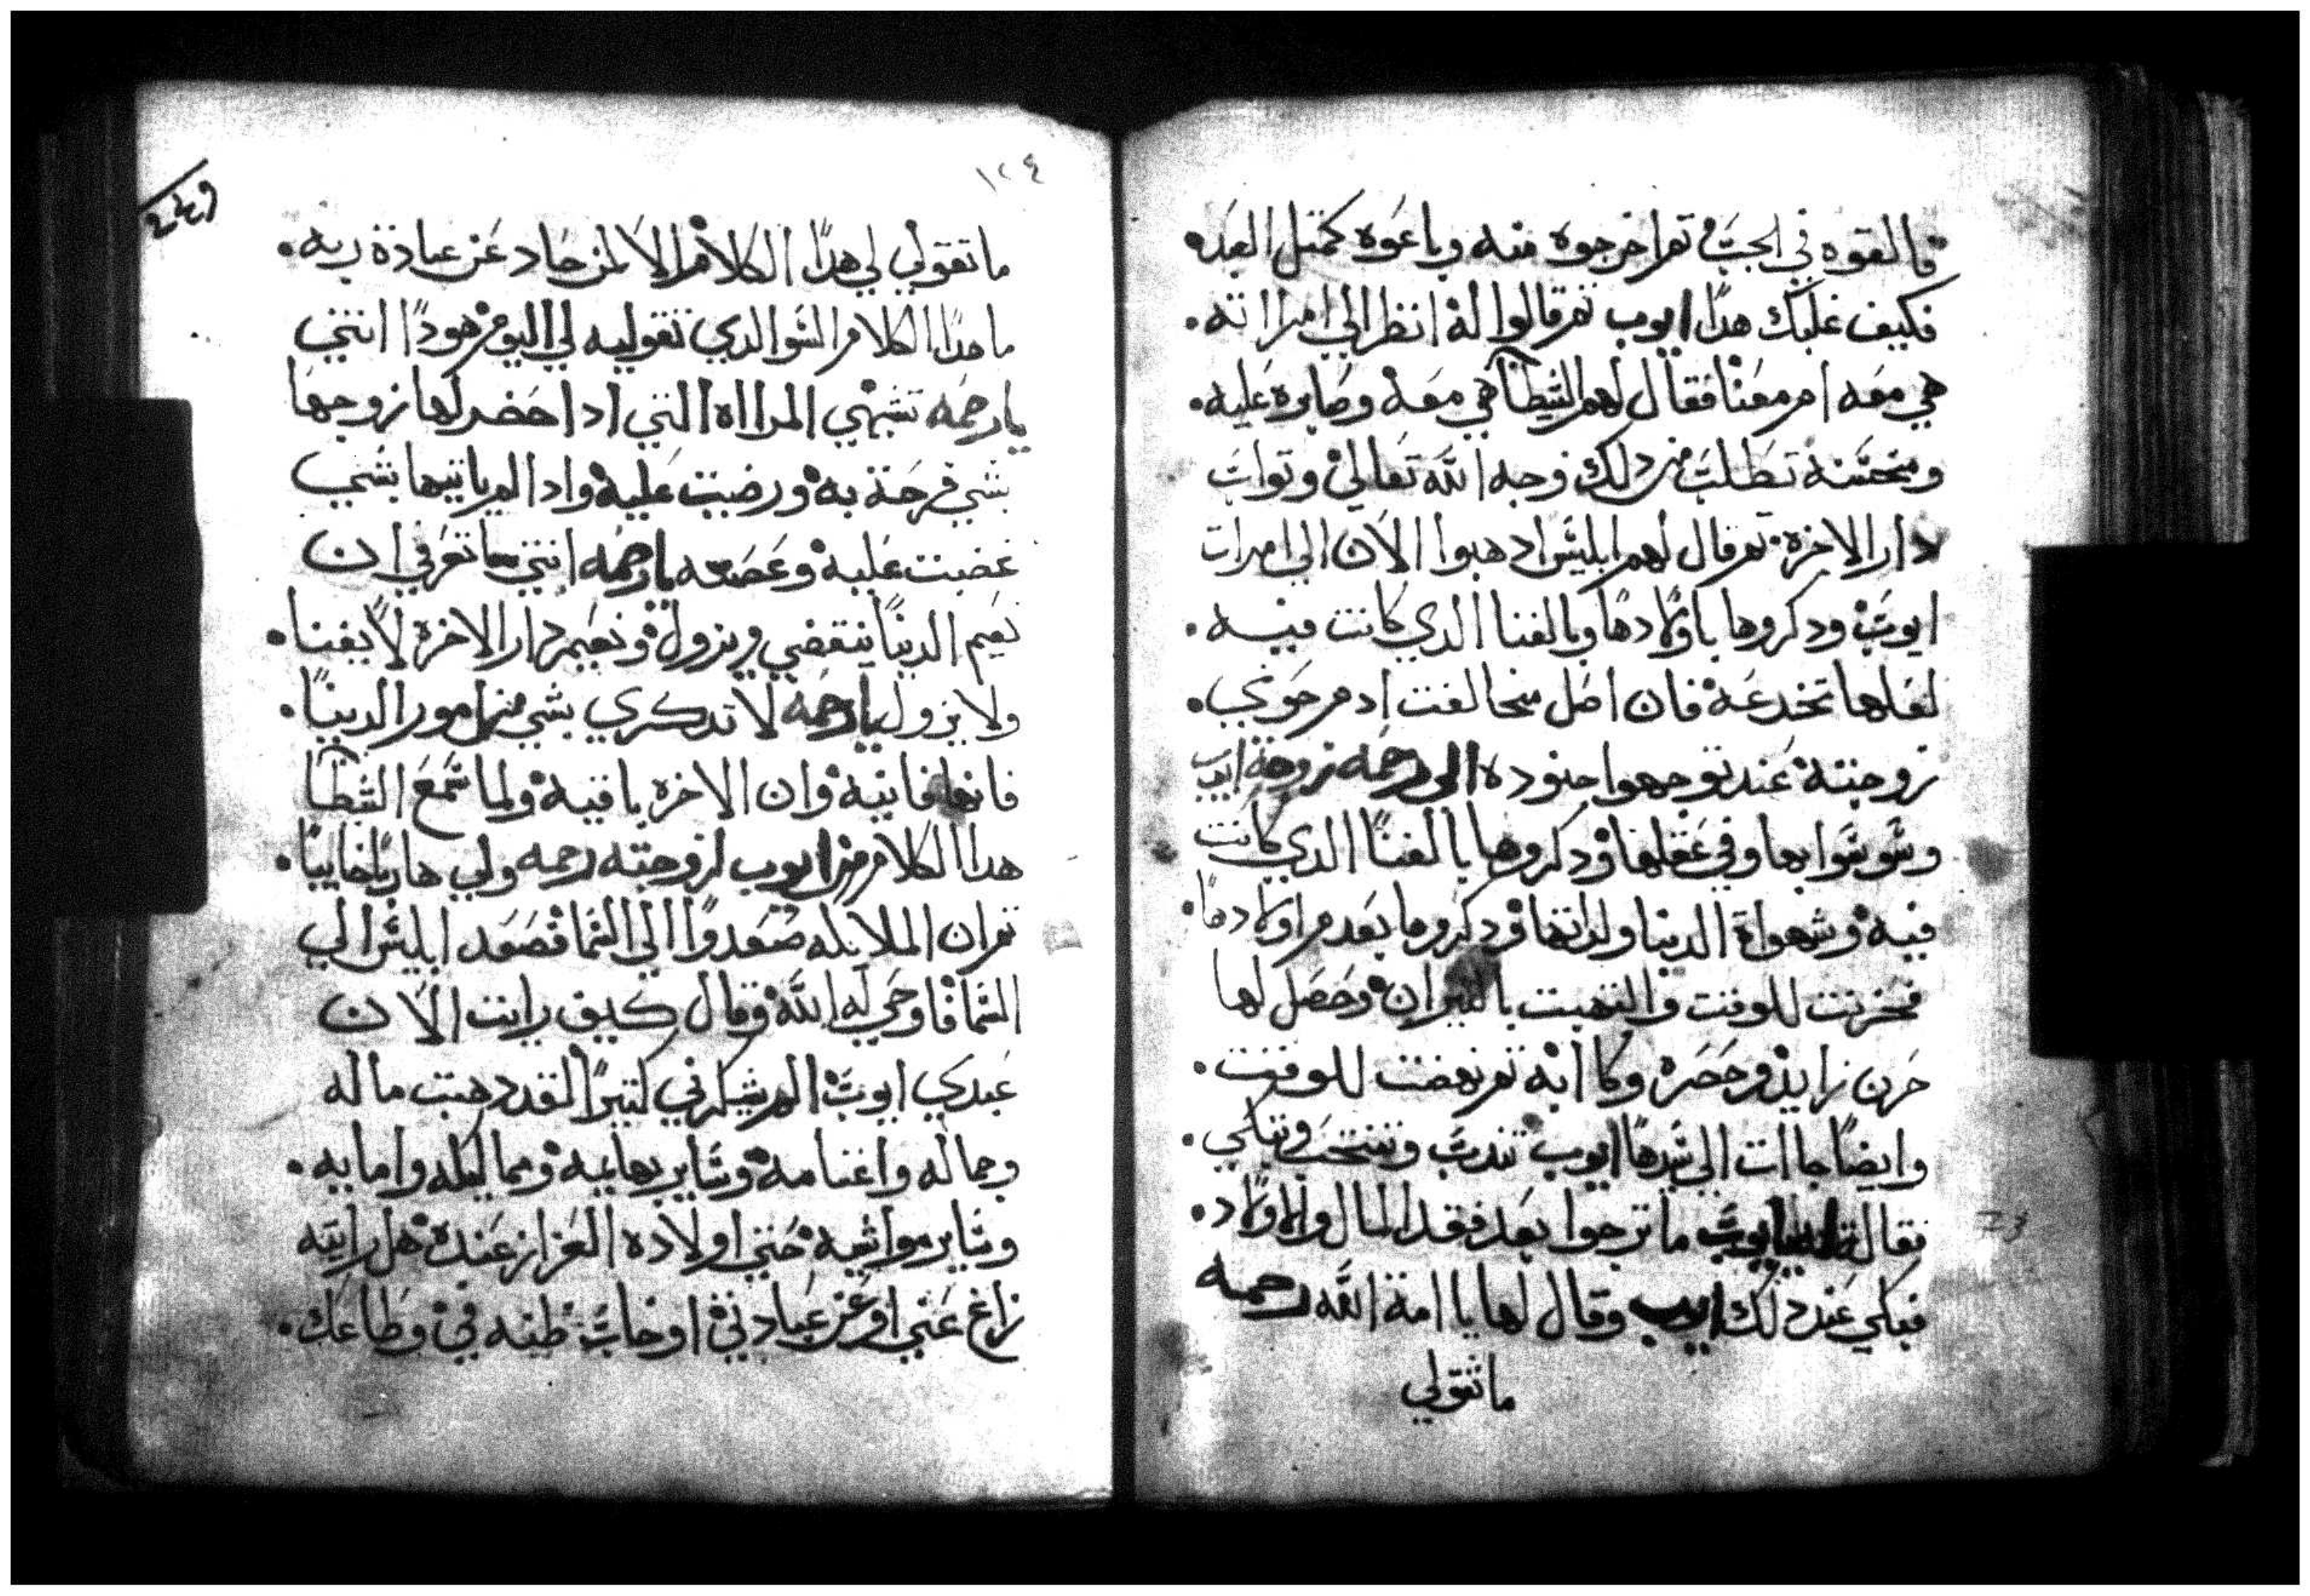 فالقوه في الجب ثم اخرجوه منه وباعوه كمتل العبد
فكيف غلبك هدا ايوب ثم قالوا له انظر الي امراته
هي معه ام معنا فقال لهم الشيطان هي معه وصابره عليه
ومحتسنه تطلب من دلك وجه الله تعالي وتواب
دار الاخرة ثم قال لهم ابليس ادهبوا الان الي امرات
ايوب ودكروها باولادها وبالغنا الدي كانت فيه
لعلها تخدعه فان اصل مخالفت ادم حوي
زوجته عند توجهوا جنوده الى رحمه زوجة ايوب
وسوسوا بها وفي عقلها ودكروها بالغنا الدي كانت
فيه وشهواة الدنيا ولداتها ودكروها بعدم اولادها
فحزنت للوقت والتهبت بالنيران وحصل لها
حزن زايد وحصره وكاابه ثم نهضت للوقت
وايضا جاات الي سيدها ايوب تندب وتنتحب وتبكي
فقالت ايوب ما ترجوا بعد فقد المال والاولاد
فبكي عند دلك ايوب وقال لها يا امة الله رحمه
ماتقولي
١٢٤
ماتقولي لي هدا الكلام الا لمن حاد عن عبادة ربه
ما هدا الكلام السو الدي تقوليه لي اليوم هودا انتي
يارحمه تشبهي المرااه التي ادا حضر لها زوجها
بشي فرحة به ورضيت عليه وادا لم ياتيها بشي
غضبت عليه وعصته يارحمه انتي ما تعرفي ان
نعيم الدنيا ينقضي ويزول ونعيم دار الاخرة لا يفنا
ولا يزول يارحمه لا تدكري بشي من امور الدنيا
فانها فانيه وان الاخره باقيه ولما سمع الشيطان
هدا الكلام من ايوب لزوجته رحمه ولي هاربا خايبا
ثم ان الملايكه صعدوا الي السما فصعد ابليس الي
السما فاوحي له الله وقال كيف رايت الان
عبدي ايوب الم يشكرني كتيرا لقد دهبت ماله
وجماله واغنامه وساير بهايمه ومماليكه وامايه
وساير مواشيه حتي اولاده العزاز عنده هل رايته
زاغ عني او عن عبادتي او خاب ظنه في وطاعك